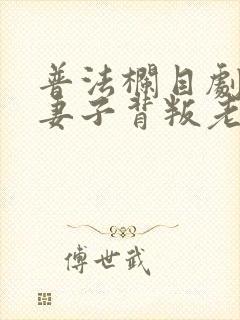 普法欄目劇
妻子背叛老
傅世武